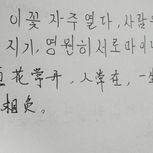 이 꽃 자주 열다, 사람
지기, 영원히 서로 마
花常开, 人常在, 一
相负